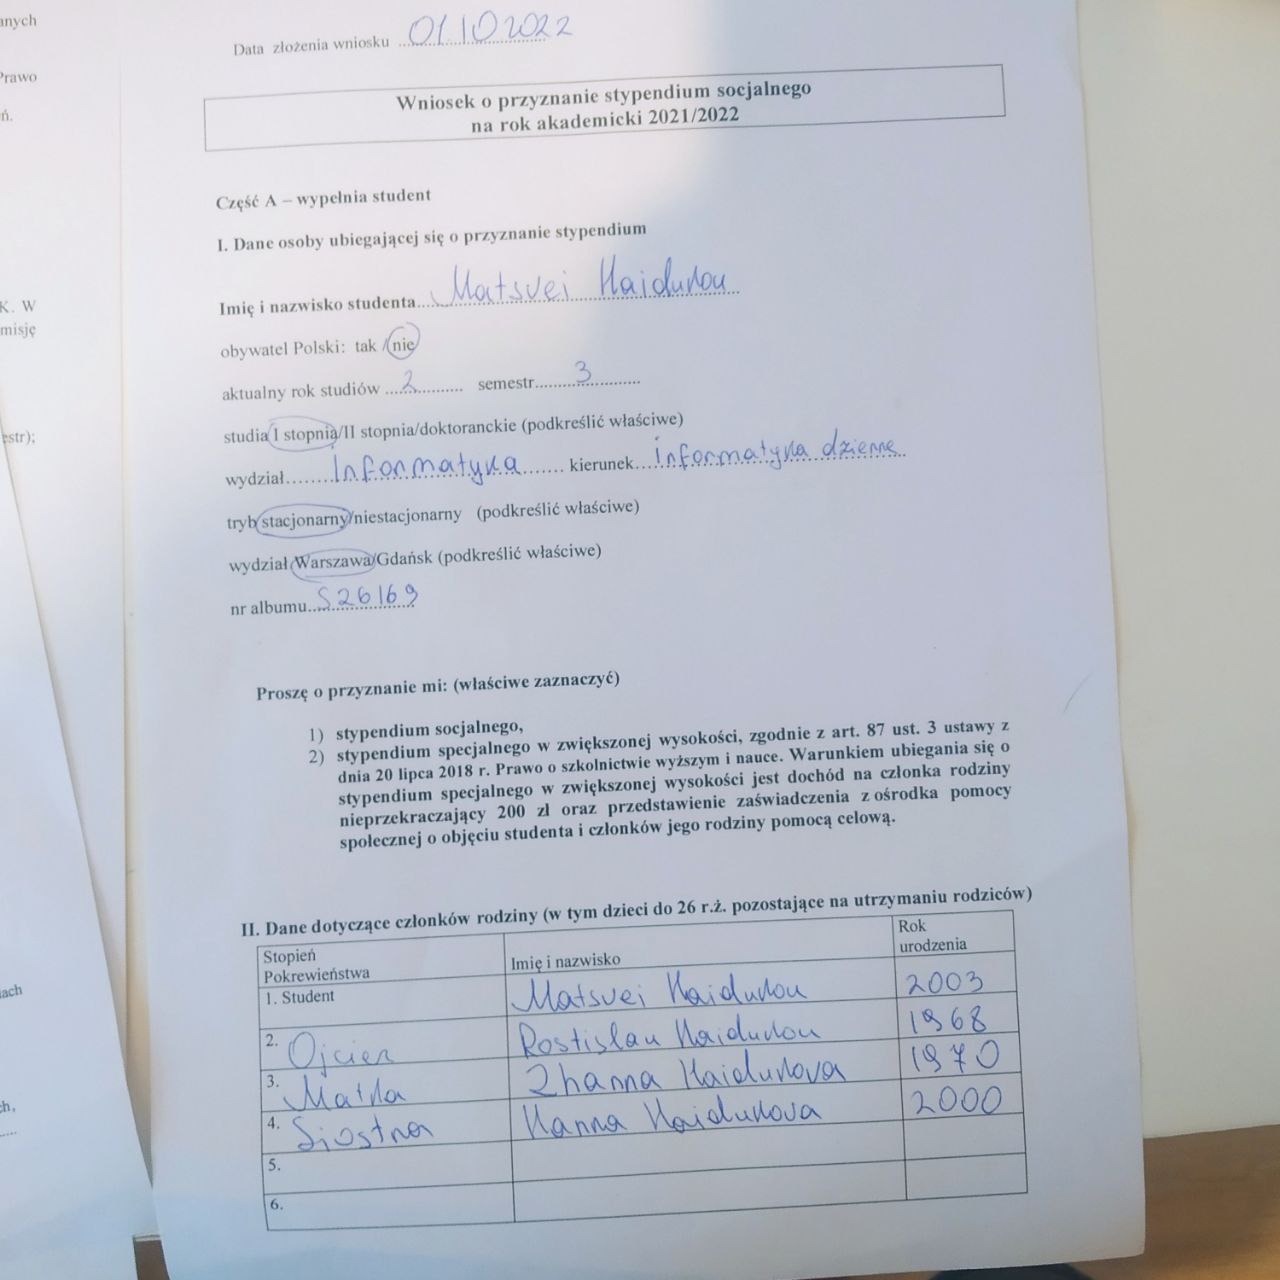 anych
Prawo
ń.
K. W
misję
estr);
ach
ch,
Data złożenia wniosku ...01.10 2022
Wniosek o przyznanie stypendium socjalnego
na rok akademicki 2021/2022
Część A – wypełnia student
I. Dane osoby ubiegającej się o przyznanie stypendium
Imię i nazwisko studenta....Matsvei Haidukou...
obywatel Polski: tak /nie
aktualny rok studiów ....2.......... semestr........3............
studia I stopnia/II stopnia/doktoranckie (podkreślić właściwe)
wydział........Informatyka....... kierunek....informatyka dzienne..
tryb stacjonarny/niestacjonarny (podkreślić właściwe)
wydział Warszawa/Gdańsk (podkreślić właściwe)
nr albumu...S26169
Proszę o przyznanie mi: (właściwe zaznaczyć)
1) stypendium socjalnego,
2) stypendium specjalnego w zwiększonej wysokości, zgodnie z art. 87 ust. 3 ustawy z
dnia 20 lipca 2018 r. Prawo o szkolnictwie wyższym i nauce. Warunkiem ubiegania się o
stypendium specjalnego w zwiększonej wysokości jest dochód na członka rodziny
nieprzekraczający 200 zł oraz przedstawienie zaświadczenia z ośrodka pomocy
społecznej o objęciu studenta i członków jego rodziny pomocą celową.
II. Dane dotyczące członków rodziny (w tym dzieci do 26 r.ż. pozostające na utrzymaniu rodziców)
Stopień
Pokrewieństwa
Imię i nazwisko
Rok
urodzenia
1. Student Matsvei Haidukou 2003
2. Ojciec Rostislau Haidukou 1968
3. Matka Zhanna Haidukova 1970
4. Siostra Hanna Haidukova 2000
5.
6.